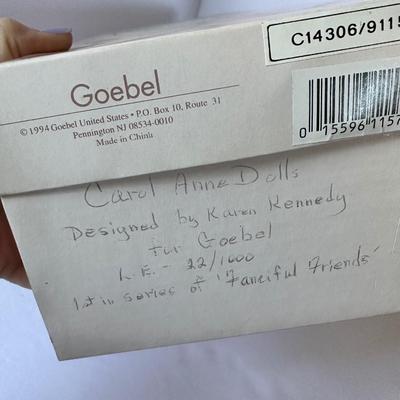 C14306/9115
Goebel
© 1994 Goebel United States • P.O. Box 10, Route 31
Pennington NJ 08534-0010
Made in China
0 15596 1157
Carol Anne Dolls
Designed by Karen Kennedy
for Goebel
L.E. - 22/1000
1st in series of "Fanciful Friends"